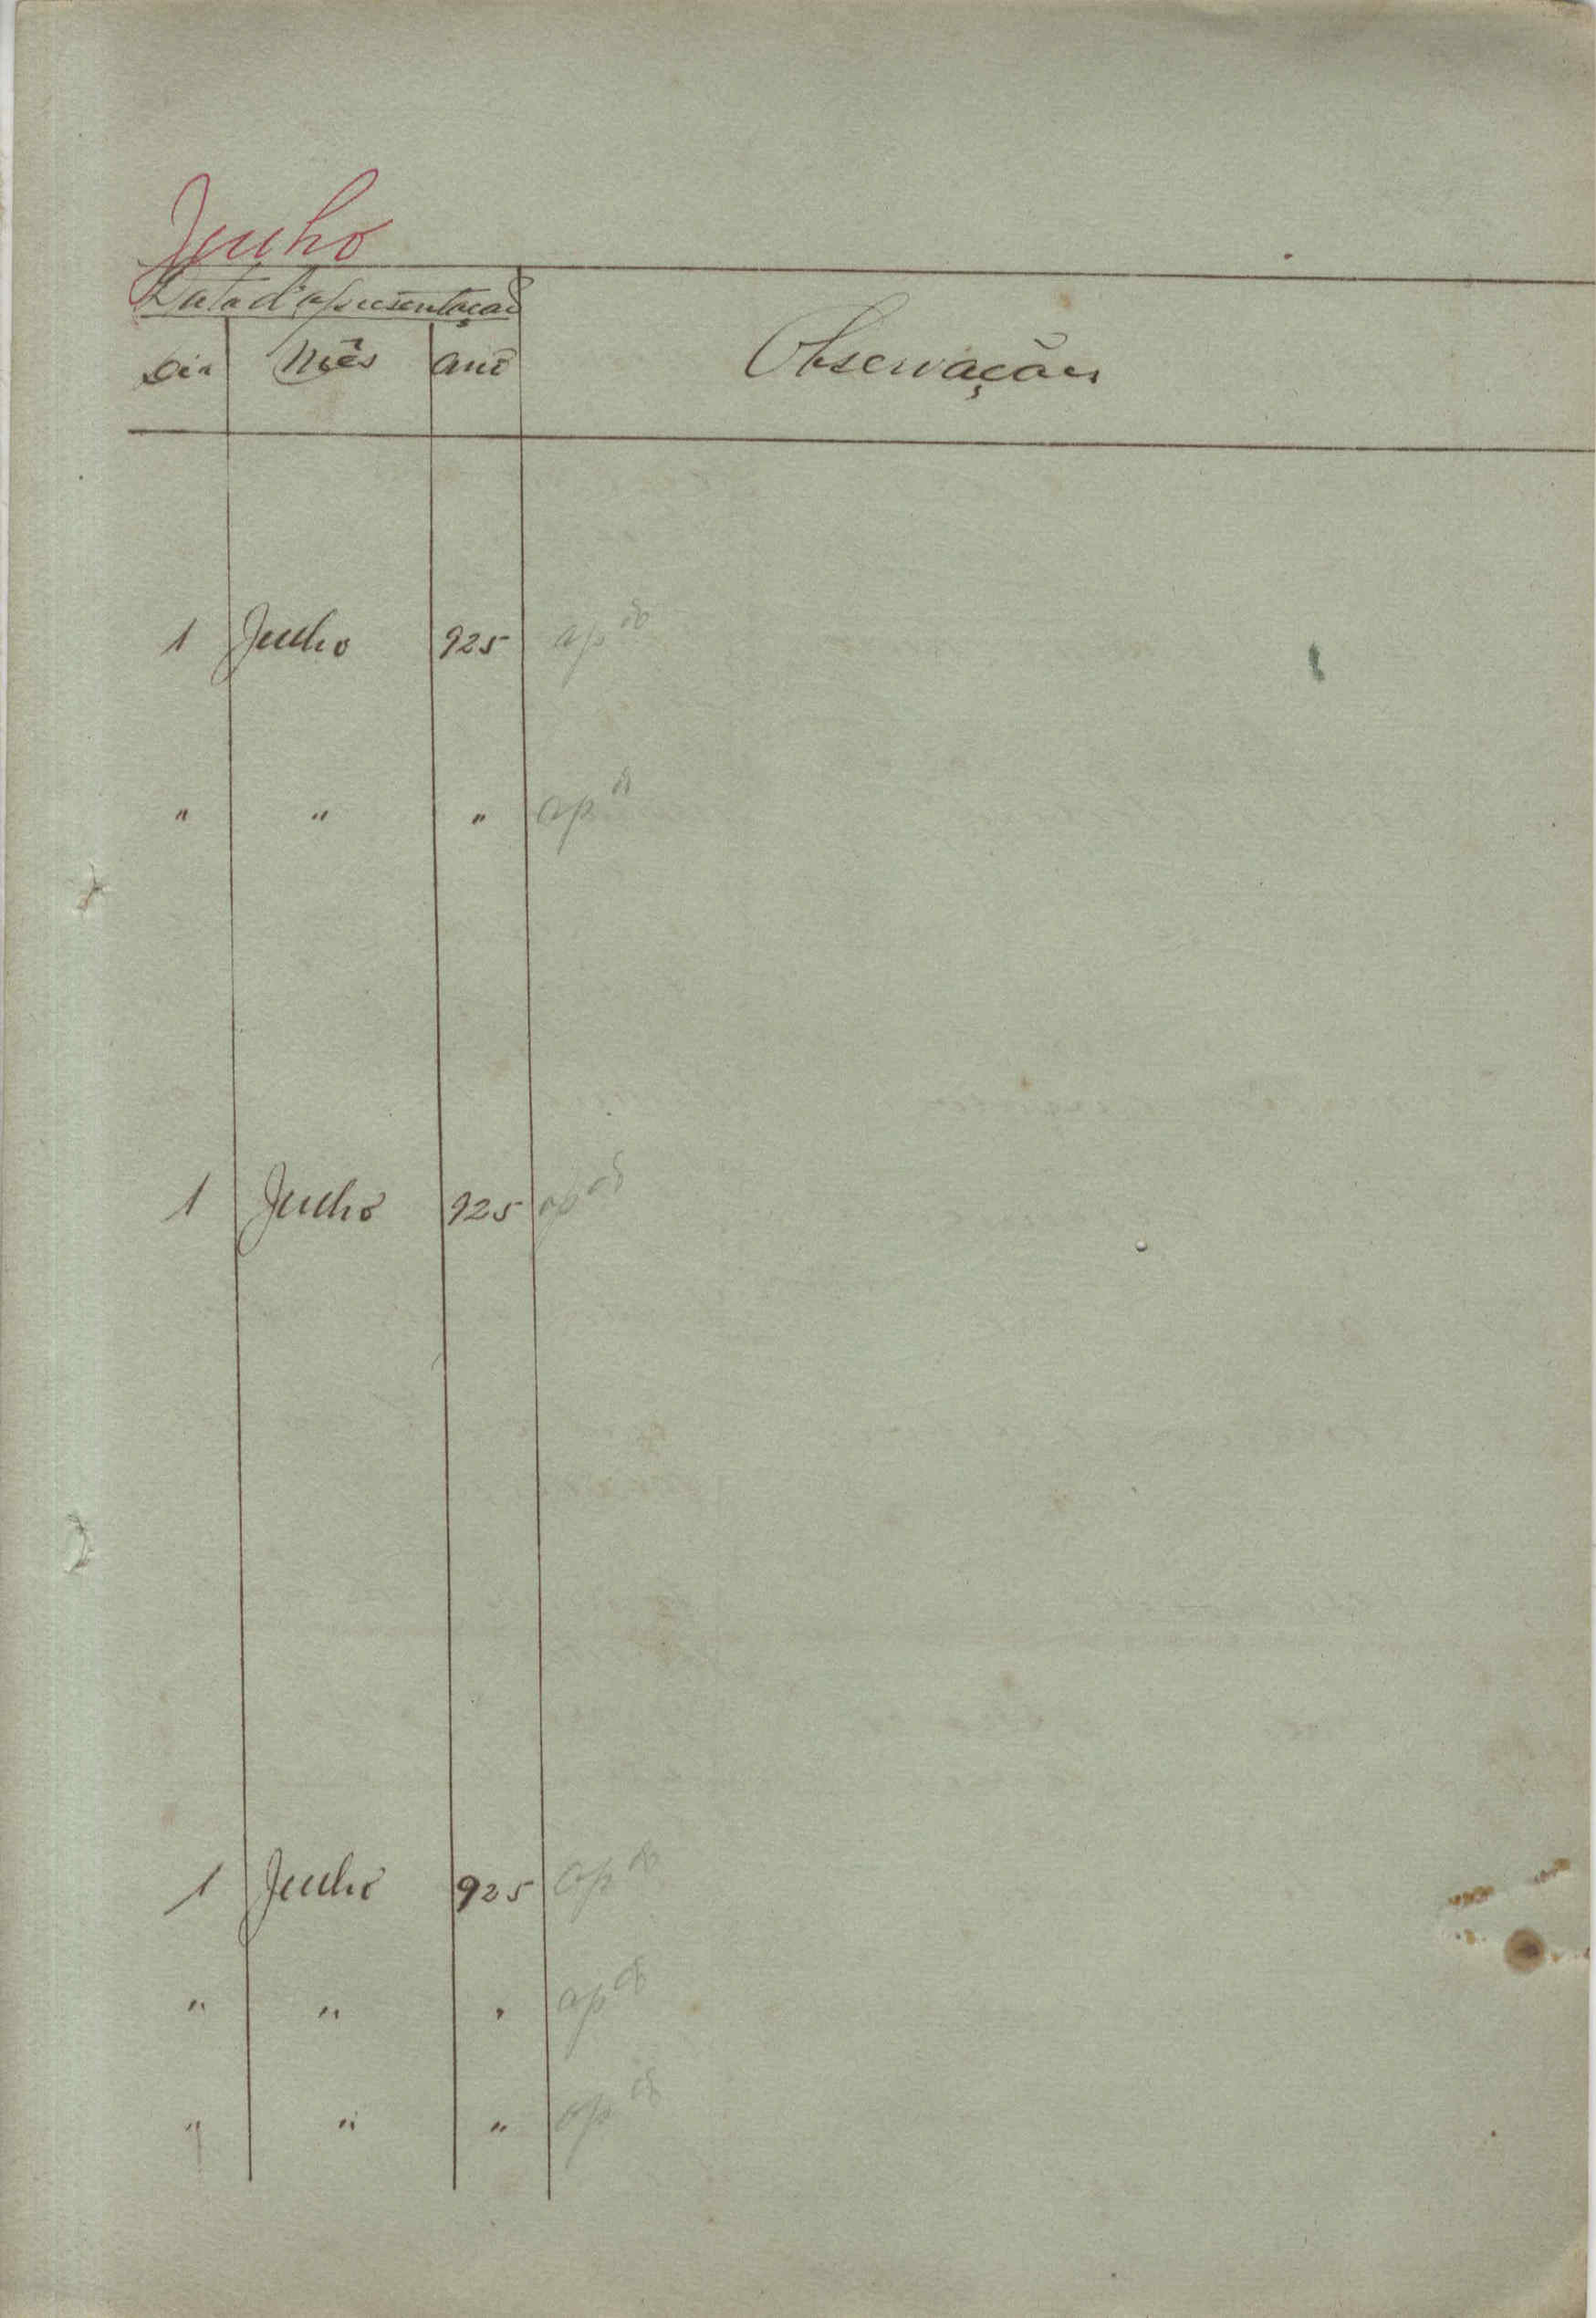 Junho
Data d'apresentação
Dia Mês anó
Observações
1 Junho 925 ap do
" " " ap do
1 Junho 925 ap do
1 Junho 925 ap do
" " " ap do
" " " ap do